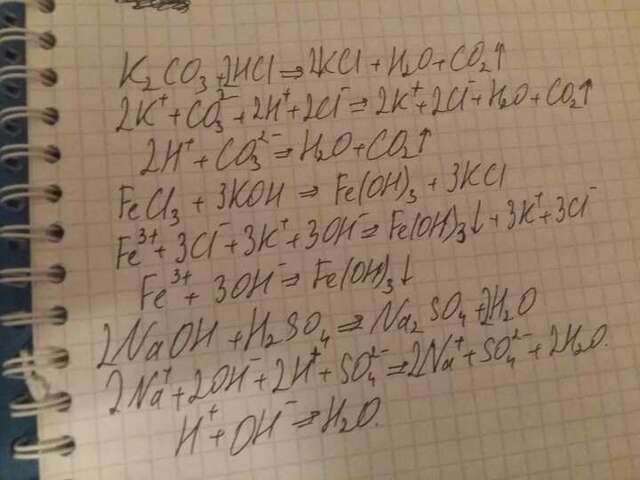 K₂CO₃ + 2HCl ⇒ 2KCl + H₂O + CO₂↑
2K⁺ + CO₃²⁻ + 2H⁺ + 2Cl⁻ ⇒ 2K⁺ + 2Cl⁻ + H₂O + CO₂↑
2H⁺ + CO₃²⁻ ⇒ H₂O + CO₂↑
FeCl₃ + 3KOH ⇒ Fe(OH)₃ + 3KCl
Fe³⁺ + 3Cl⁻ + 3K⁺ + 3OH⁻ ⇒ Fe(OH)₃↓ + 3K⁺ + 3Cl⁻
Fe³⁺ + 3OH⁻ ⇒ Fe(OH)₃↓
2NaOH + H₂SO₄ ⇒ Na₂SO₄ + 2H₂O
2Na⁺ + 2OH⁻ + 2H⁺ + SO₄²⁻ ⇒ 2Na⁺ + SO₄²⁻ + 2H₂O.
H⁺ + OH⁻ ⇒ H₂O.